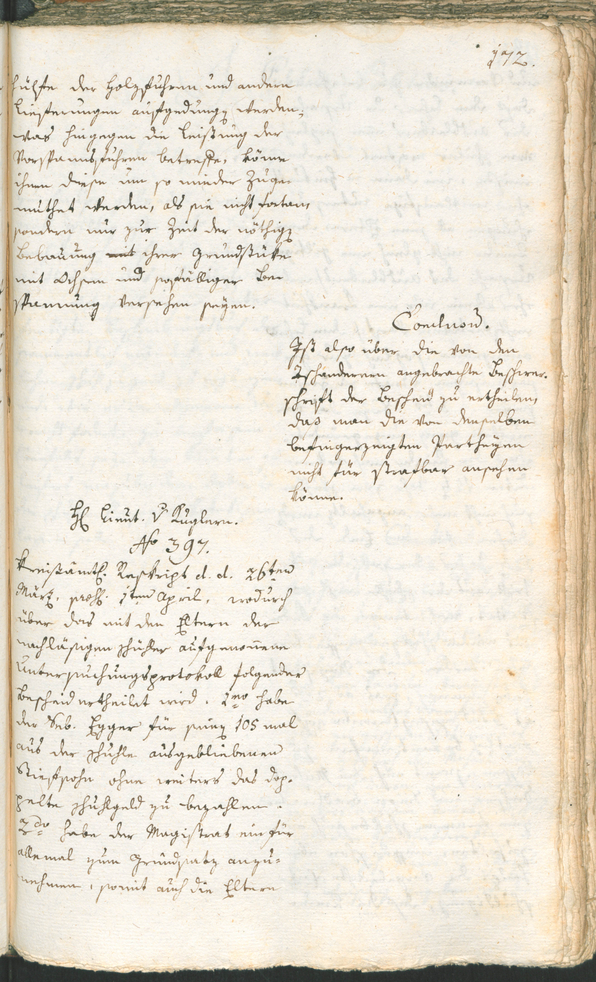 172.
hülfte der Holzfuhren und andern
Lieferungen aufgedungen werden,
was hingegen die Leistung der
Vorspannsfuhren betreffe, könne
ihnen diese um so minder zuge-
muthet werden, als sie nicht fortan,
sondern nur zur Zeit der nöthigen
Bebauung mit ihrer Grundstüke
mit Ochsen und zufälliger Be-
spannung versehen seyen.
Conclusum.
Ist also über die von den
Tschanderern angebrachte Beschwer-
schrift der Bescheid zu ertheilen,
das man die von denselben
befingerzeigten Partheyen
nicht für strafbar ansehen
könne.
H Lieut. v Kuglern.
No 397.
Kreisämtl. Reskript d. d. 26ten
März, präs: 1ten April, wodurch
über das mit den Eltern der
nachläsigen Schüller aufgenommene
Untersuchungsprotokoll folgender
Bescheid ertheilet wird. 1mo habe
der Seb. Egger für seinen 105 mal
aus der Schuhle ausgebliebenen
Stiefsohn ohne weiters das dop-
pelte Schuhlgeld zu bezahlen.
2do habe der Magistrat ein für
allemal zum Grundsatz anzu-
nehmen, somit auch die Eltern